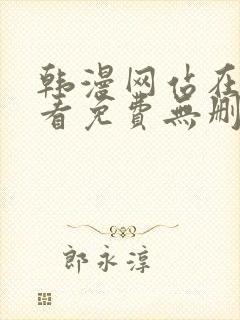 韩漫网站在
看免費無删
郎永淳